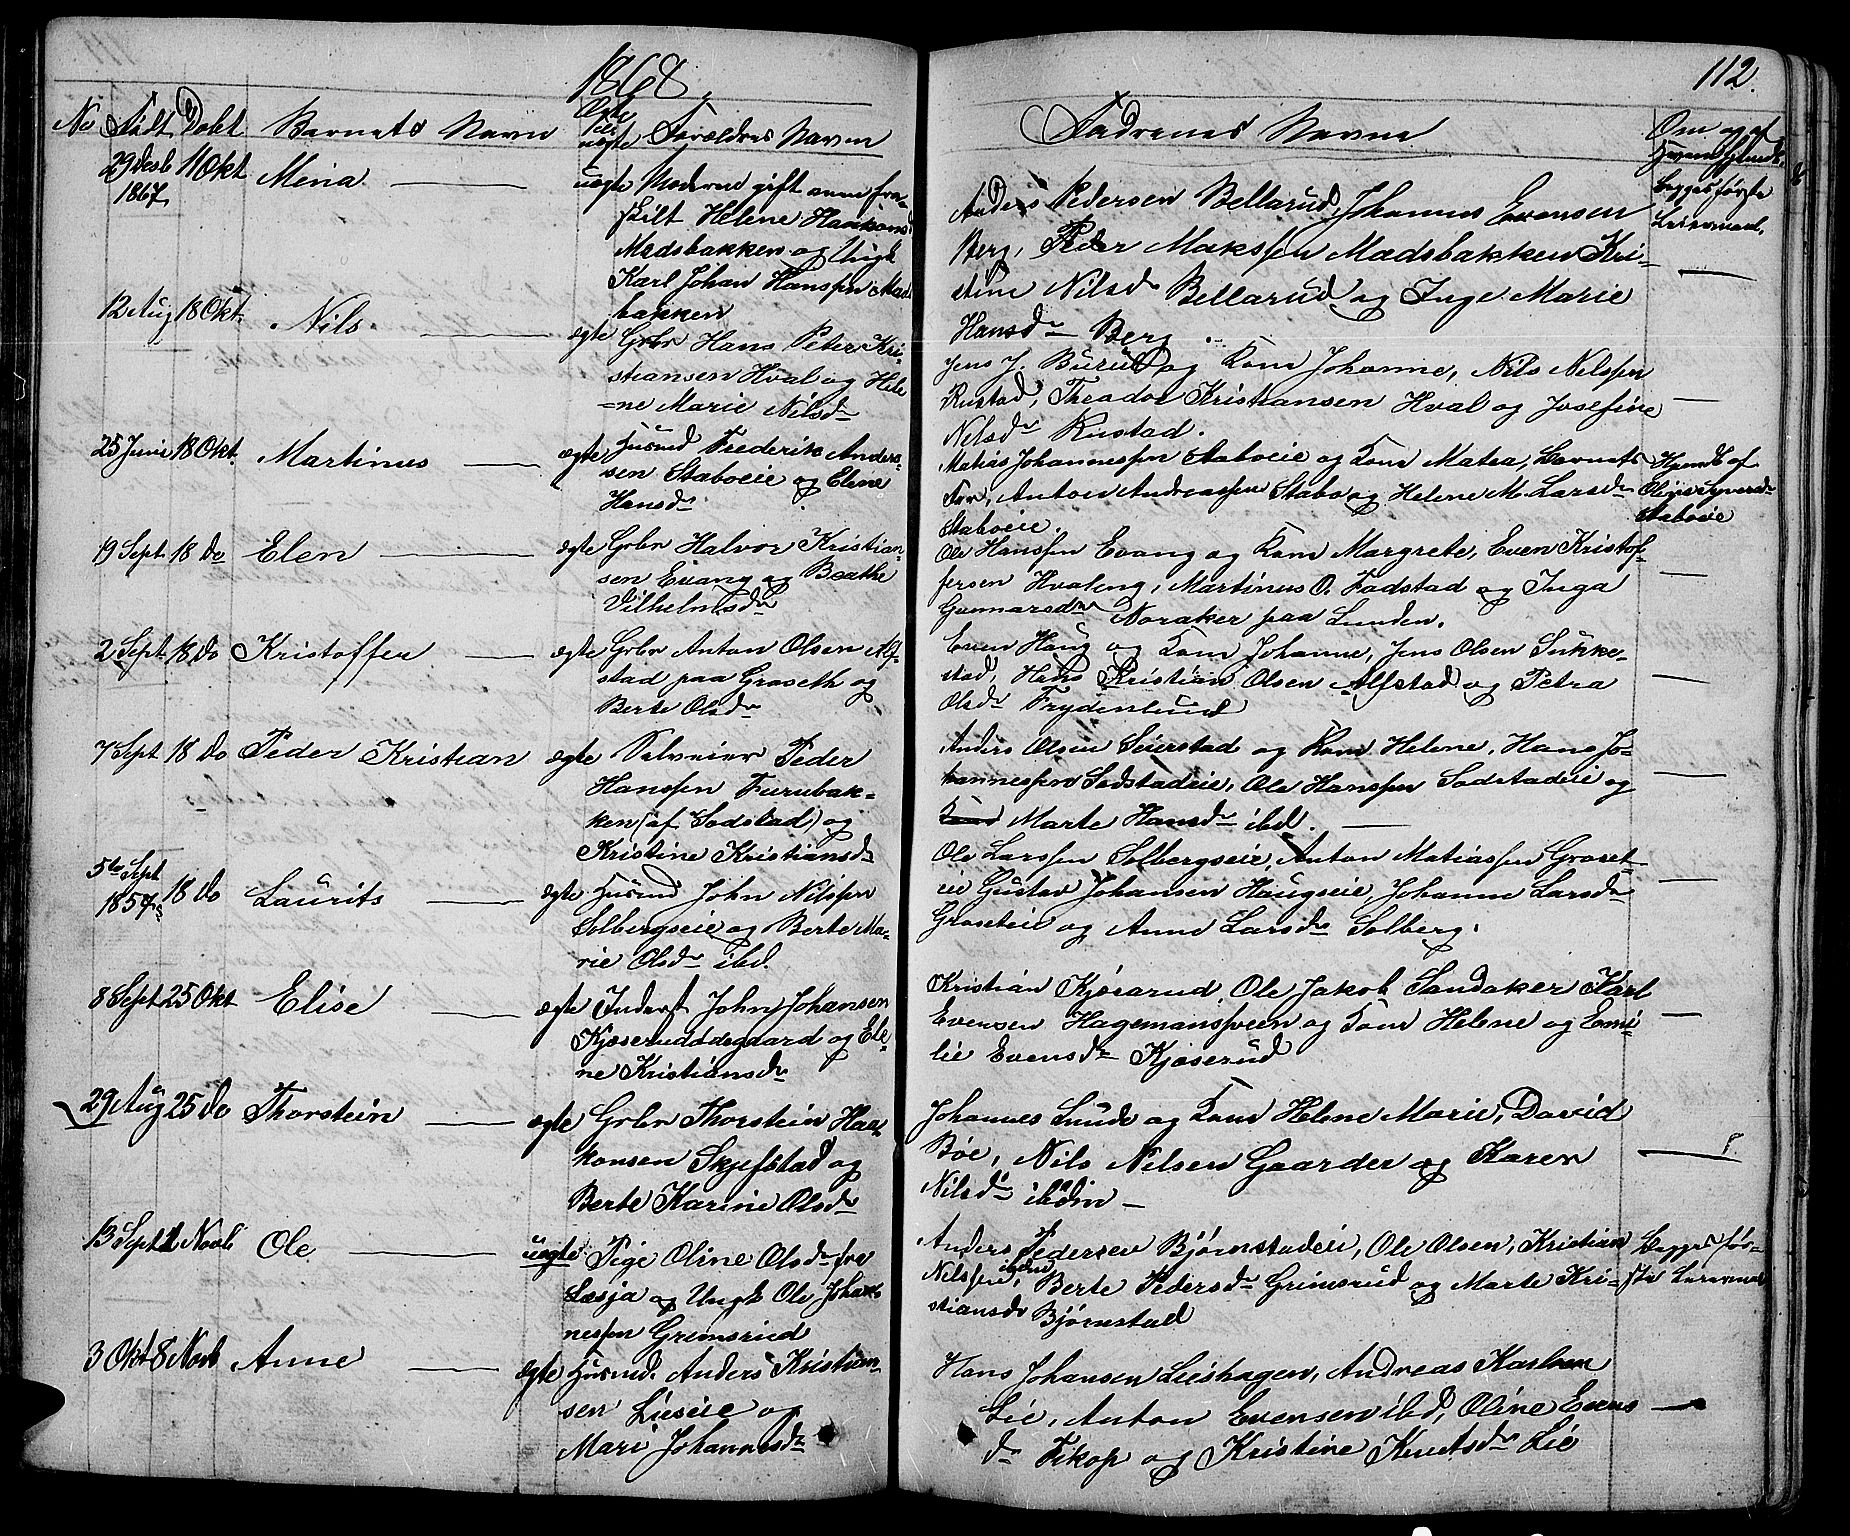 1868.
112.
No Født Døbt Barnets Navn Ægte els uægte Forældres Navn
Faddernes Navne
Om og af
hvem hjemdt.
29 Desb 1867 11 Okt Mina uægte Moderen gift men fra-
skilt Helene Haakonsd
Madsbakken og Ungk
Karl Johan Hanssen Mads
bakken
Anders Pedersen Bellerud, Johannes Evensen
Berg, Peder Makssen Madsbakken Kri-
stine Nilsdr Bellerud og Inge Marie
Hansdr Berg.
Begges første
Leiermaal.
12 Aug 18 Okt. Nils ægte Grbr Hans Peter Kri-
stiansen Hval og Hele
=ne Marie Nilsdr
Jens J. Burud og Kone Johanne, Nils Nilssen
Rustad, Theador Kristiansen Hval og Josefine
Nilsdr Rustad.
25 Juni 18 Okt. Martinus ægte Husmd Frederik Anders-
sen Staboeie og Elene
Hansdr
Matias Johannessen Staboeie og Kone Matea, Barnets
Far, Anton Andreassen Stabo og Helene M. Larsdr
Staboeie.
Hjemdt af
Oline Syversdr
Staboeie
19 Sept 18 Do Elen ægte Grbr Halvor Kristian-
sen Evang og Beathe
Vilhelmsdr
Ole Hanssen Evang og Kone Margrete, Even Kristof-
fersen Hvaleng, Martinus O. Fodstad og Inga
Gunnarsdr Noraker paa Lunden.
2 Sept 18 Do Kristoffer ægte Grbr Anton Olsen Alf-
stad paa Graseth og
Berte Olsdr
Even Haug og Kone Johanne, Jens Olsen Sukke-
stad, Hans Kristian Olsen Alfstad og Petra
Olsdr Frydenlund
7 Sept 18 Do Peder Kristian ægte Selveier Peder
Hanssen Furubak-
ken (af Sodstad) og
Kristine Kristiansdr
Anders Olsen Seierstad og Kone Helene, Hans Jo-
hannessen Sodstadeie, Ole Hanssen Sodstadeie og
Marte Hansdr ibd.
5te Sept 1857 18 Do Laurits ægte Husmd John Nilssen
Solbergseie og Berte Ma-
rie Olsdr ibd.
Ole Larssen Solbergseie, Anton Matiassen Graset
eie Gustav Johansen Haugseie, Johanne Larsdr
Graseteie og Anne Larsdr Solberg.
8 Sept 25 Okt Elise ægte Inderst John Johansen
Kjøserudødegaard og Ele-
ne Kristiansdr
Kristian Kjøserud, Ole Jakob Sandaker Karl
Evensen Hagemansveen og Kone Helene og Emi-
lie Evensdr Kjøserud
29 Aug 25 Do Thorstein ægte Grbr Thorstein Haa-
konsen Skjefstad og
Berte Karine Olsdr
Johannes Lunde og Kone Helene Marie, David
Bøe, Nils Nilsen Gaarder og Karen
Nilsdr ibdm
13 Sept 1 Novb Ole uægte Pige Oline Olsdr fra
Læsja og Ungk Ole Johan-
nessen Grimsrud
Anders Pedersen Bjørnstadeie, Ole Olsen, Kristian
Nilssen ibdm, Berte Pedersdr Grimsrud og Marte Kri-
stiansdr Bjørnstad
Begges før-
ste Leiermaal
3 Okt 8 Novb Anne ægte Husmd. Anders Kristian-
sen Lieseie og
Mari Johannesdr
Hans Johansen Lieshagen, Andreas Karlsen
Lie, Anton Evensen ibd, Oline Evens
dr Fikop og Kristine Knutsdr Lie